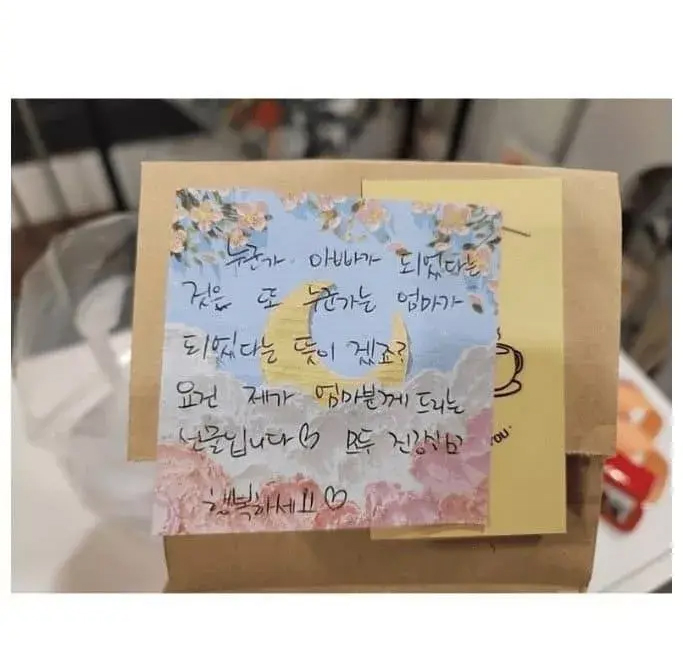 누군가 아빠가 되었다는
것은 또 누군가는 엄마가
되었다는 뜻이 겠죠?
요건 제가 엄마분께 드리는
선물입니다♡ 모두 건강하고
행복하세요♡
you.